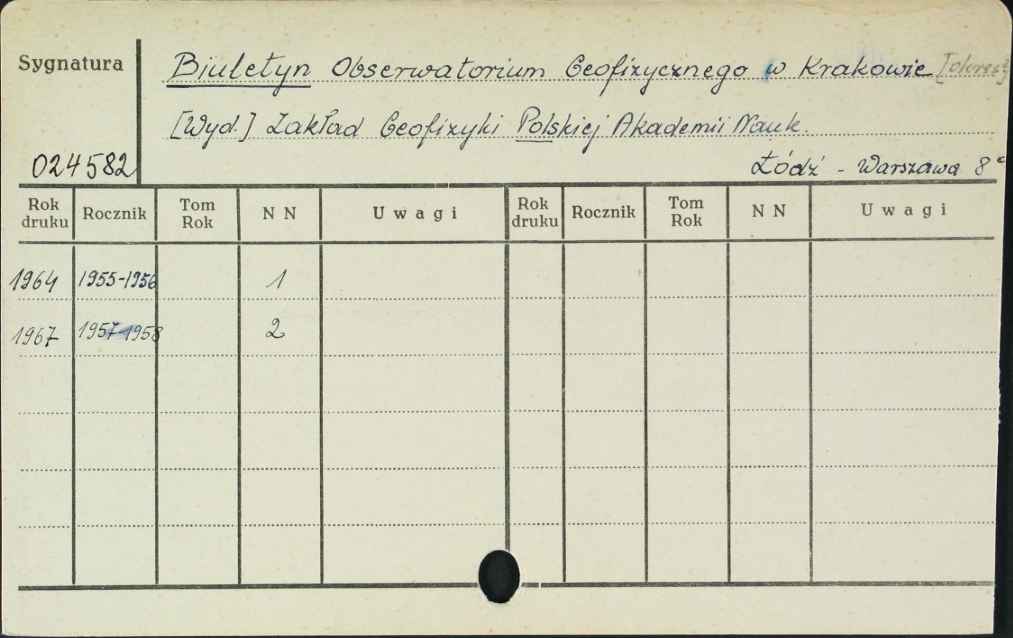 Sygnatura
Biuletyn Obserwatorium Geofizycznego w Krakowie
[Wyd.] Zakład Geofizyki Polskiej Akademii Nauk.
024582
Łódź - Warszawa 8°
Rok druku Rocznik Tom Rok N N Uwagi Rok druku Rocznik Tom Rok N N Uwagi
1964 1955-1956 1
1967 1957-1958 2